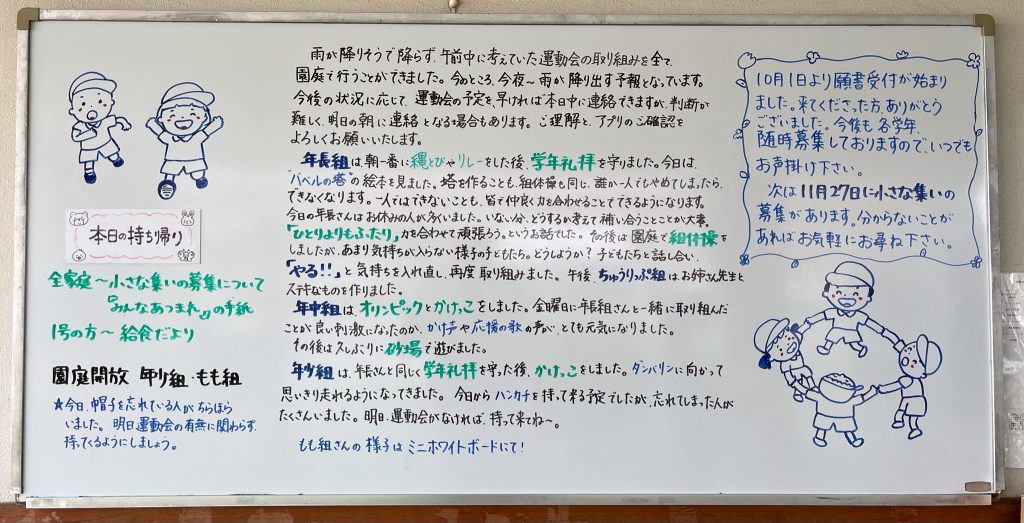 本日の持ち帰り
全家庭～小さな集いの募集について
『みんなあつまれ』の手紙
1号の方～給食だより
園庭開放 年少組・もも組
☆今日、帽子を忘れている人がちらほら
いました。明日運動会の有無に関わらず、
持ってくるようにしましょう。
雨が降りそうで降らず、午前中に考えていた運動会の取り組みを全て、
園庭で行うことができました。今のところ、今夜～雨が降り出す予報となっています。
今後の状況に応じて、運動会の予定を、早ければ本日中に連絡できますが、判断が
難しく、明日の朝に連絡となる場合もあります。ご理解と、アプリのご確認を
よろしくお願いいたします。
年長組は、朝一番に縄とびやリレーをした後、学年礼拝を守りました。今日は、
"バベルの塔"の絵本を見ました。塔を作ることも、組体操も同じ、誰か一人でもやめてしまったら、
できなくなります。一人ではできないことも、皆で仲良く力を合わせることでできるようになります。
今日の年長さんはお休みの人が多くいました。いない分、どうするか考えて補い合うことことが大事。
「ひとりよりもふたり」力を合わせて頑張ろう。というお話でした。その後は園庭で組体操を
しましたが、あまり気持ちが入らない様子の子どもたち。どうしようか？子どもたちと話し合い、
「やる!!」と気持ちを入れ直し、再度取り組みました。午後、ちゅうりっぷ組はお姉さん先生と
ステキなものを作りました。
年中組は、オリンピックとかけっこをしました。金曜日に年長組さんと一緒に取り組んだ
ことが良い刺激になったのか、かけ声や応援の歌の声が、とても元気になりました。
その後は久しぶりに砂場で遊びました。
年少組は、年長さんと同じく学年礼拝を守った後、かけっこをしました。ダンバリンに向かって
思いきり走れるようになってきました。今日からハンカチを持って来る予定でしたが、忘れてしまった人が
たくさんいました。明日、運動会がなければ、持って来てね～。
もも組さんの様子はミニホワイトボードにて！
10月1日より願書受付が始まり
ました。来てくださった方、ありがとう
ございました。今後も各学年、
随時募集しておりますので、いつでも
お声掛け下さい。
次は11月27日に小さな集いの
募集があります。分からないことが
あればお気軽にお尋ね下さい。